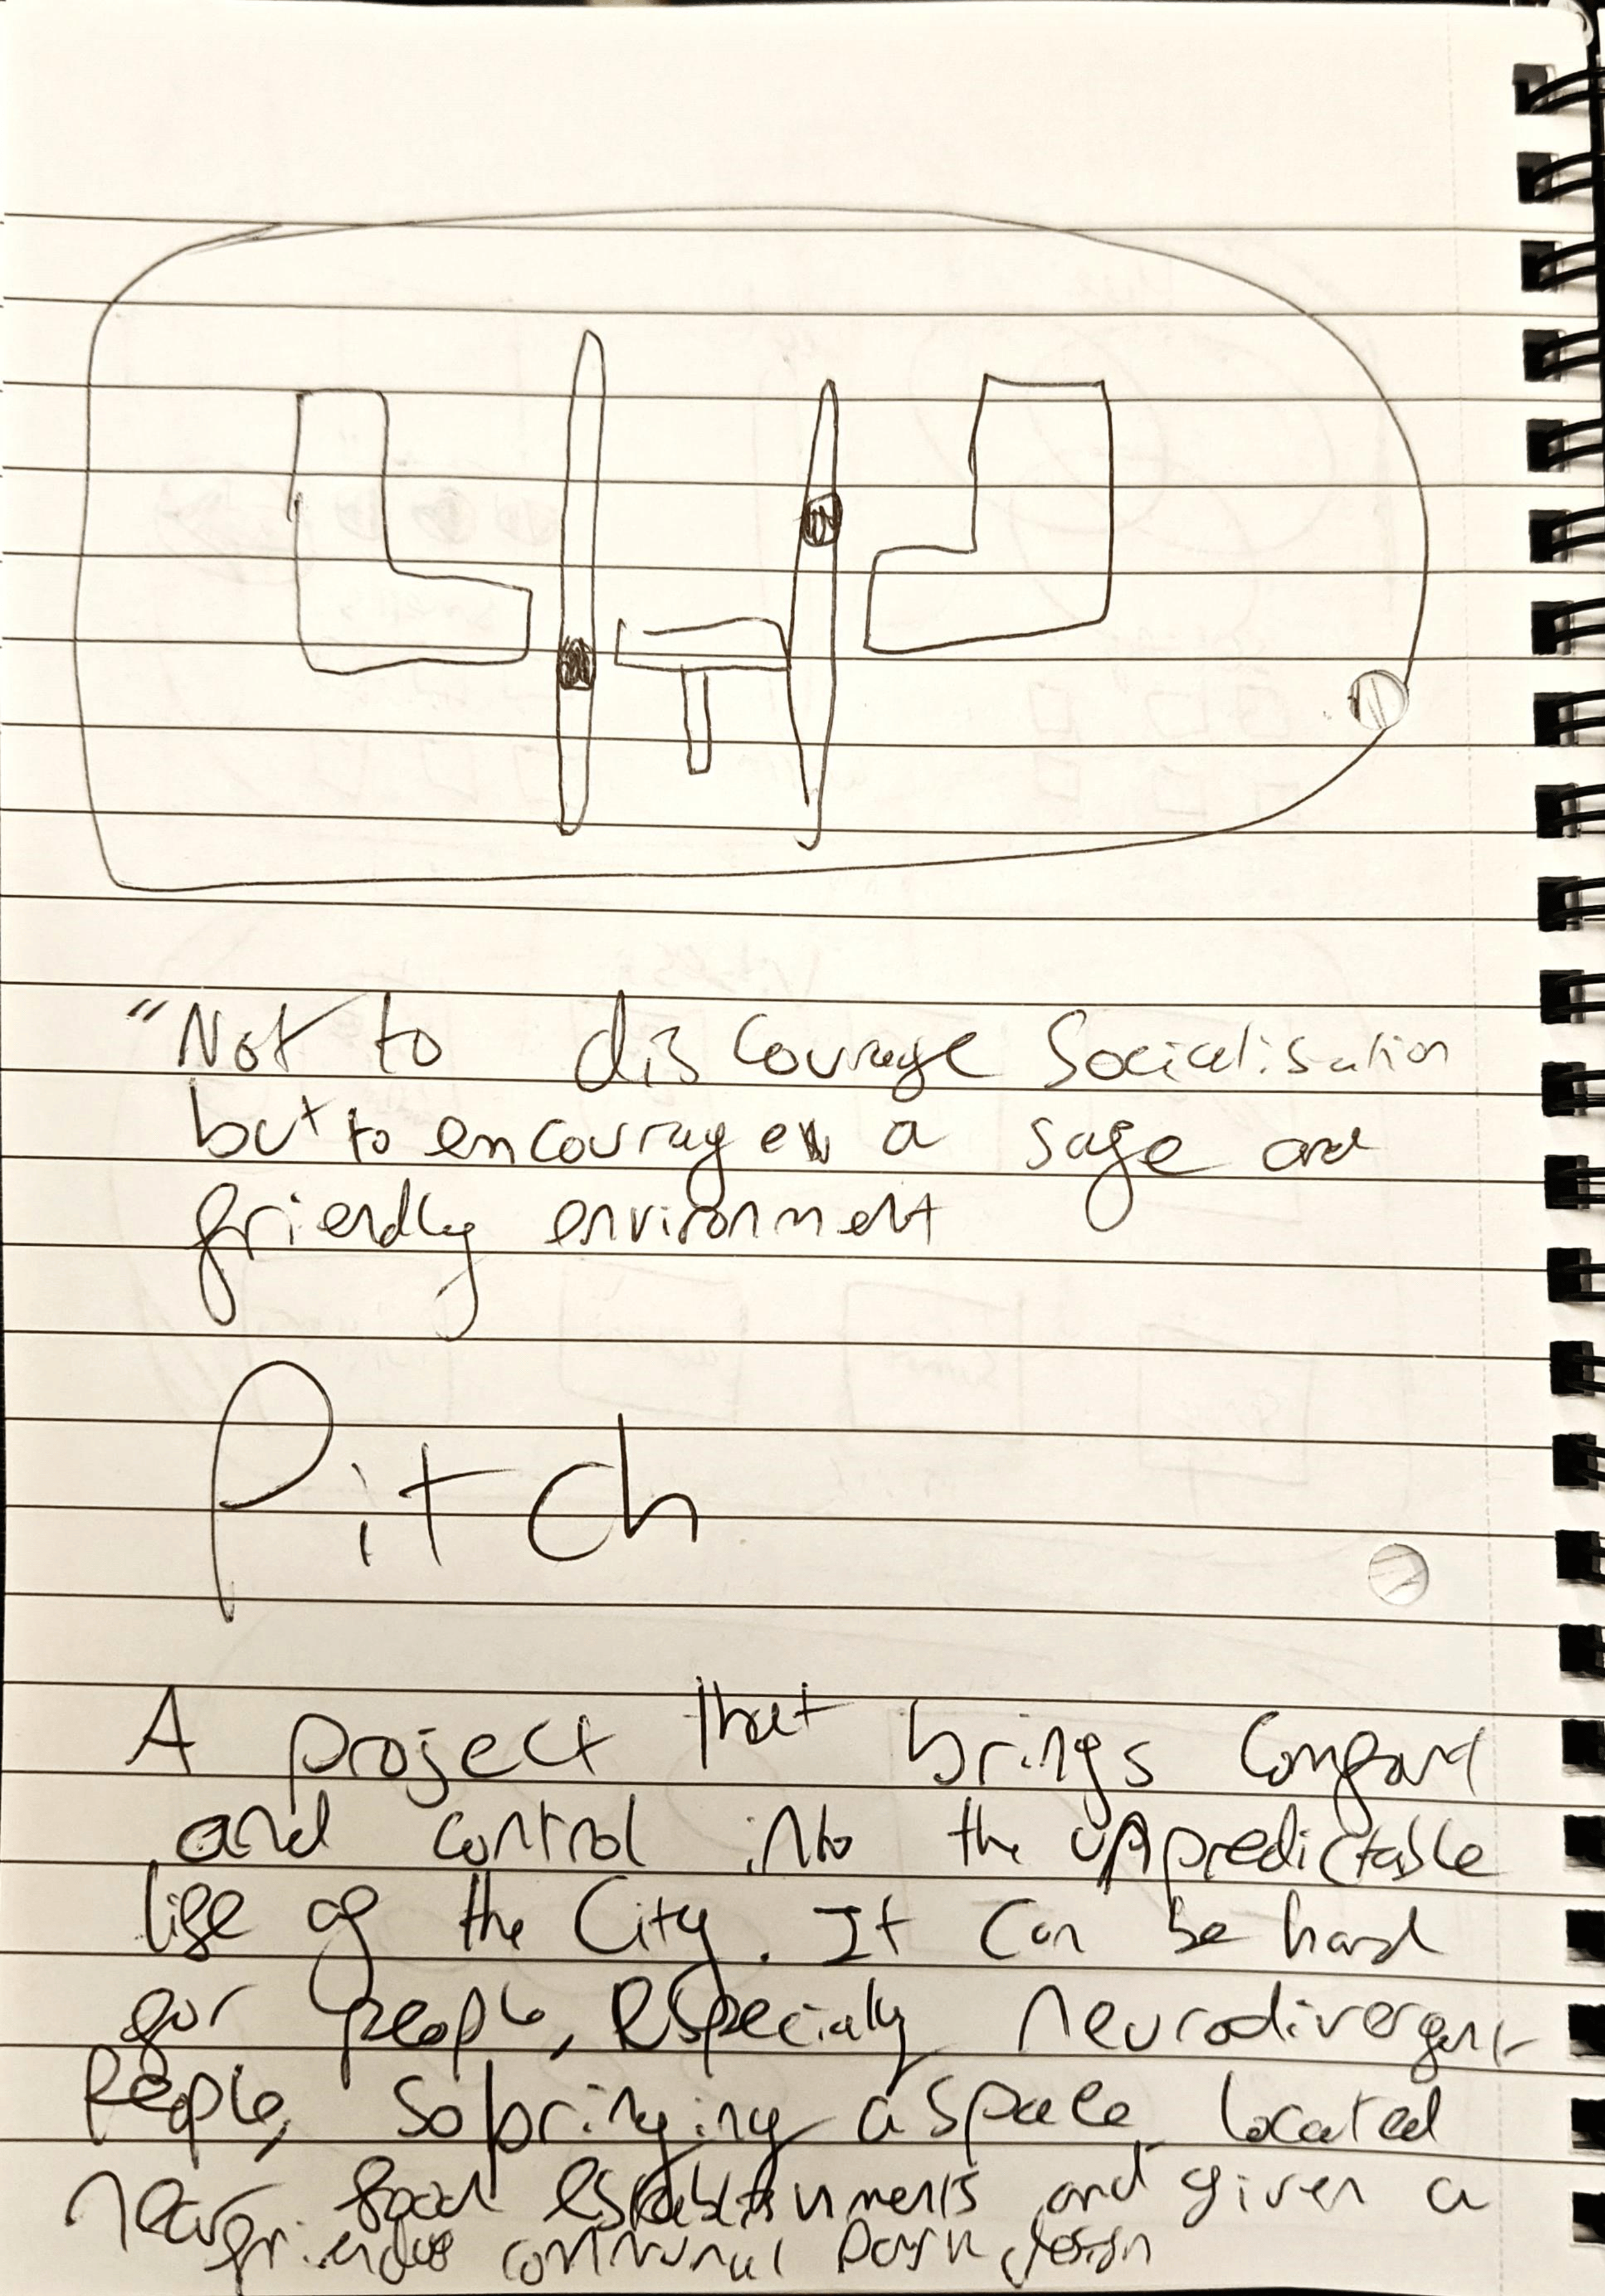 "Not to discourage Socialisation
but to encourage a safe and
friendly environment
Pitch
A project that brings comfort
and control into the unpredictable
life of the City. It can be hard
for people, especially neurodivergent
People, so bringing a space located
near food establishments and given a
friendly communal Park design